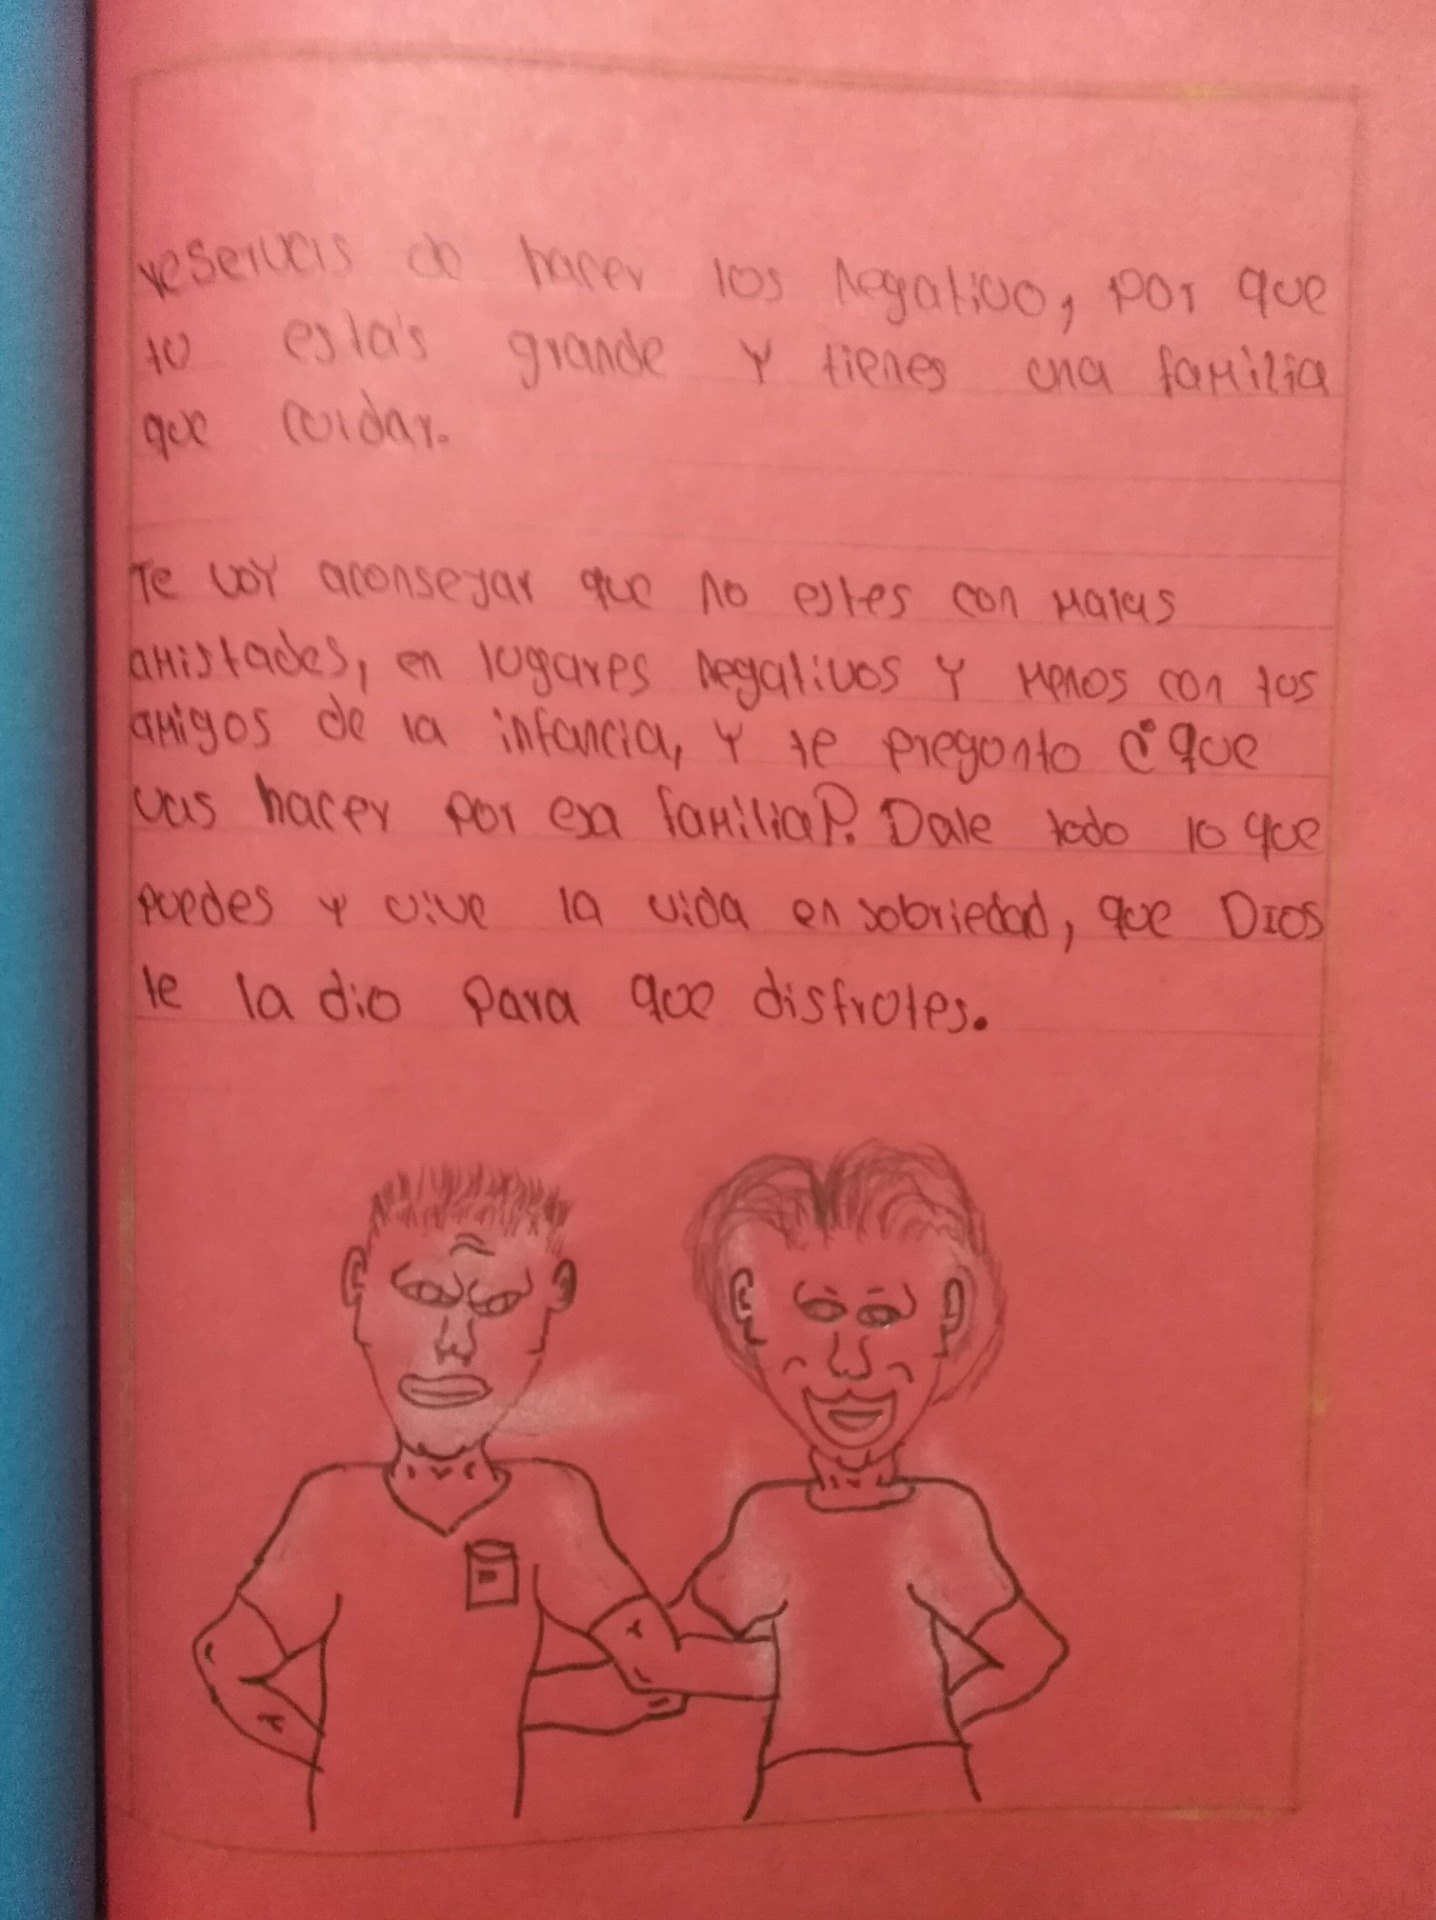 reservas de hacer los Negativo, por que
tu estás grande y tienes una familia
que cuidar.
Te voy aconseyar que no estes con malas
amistades, en lugares negativos y menos con tus
amigos de la infancia, y te pregunto ¿que
vas hacer por esa familia?. Dale todo lo que
puedes y vive la vida en sobriedad, que DIOS
te la dio para que disfrutes.